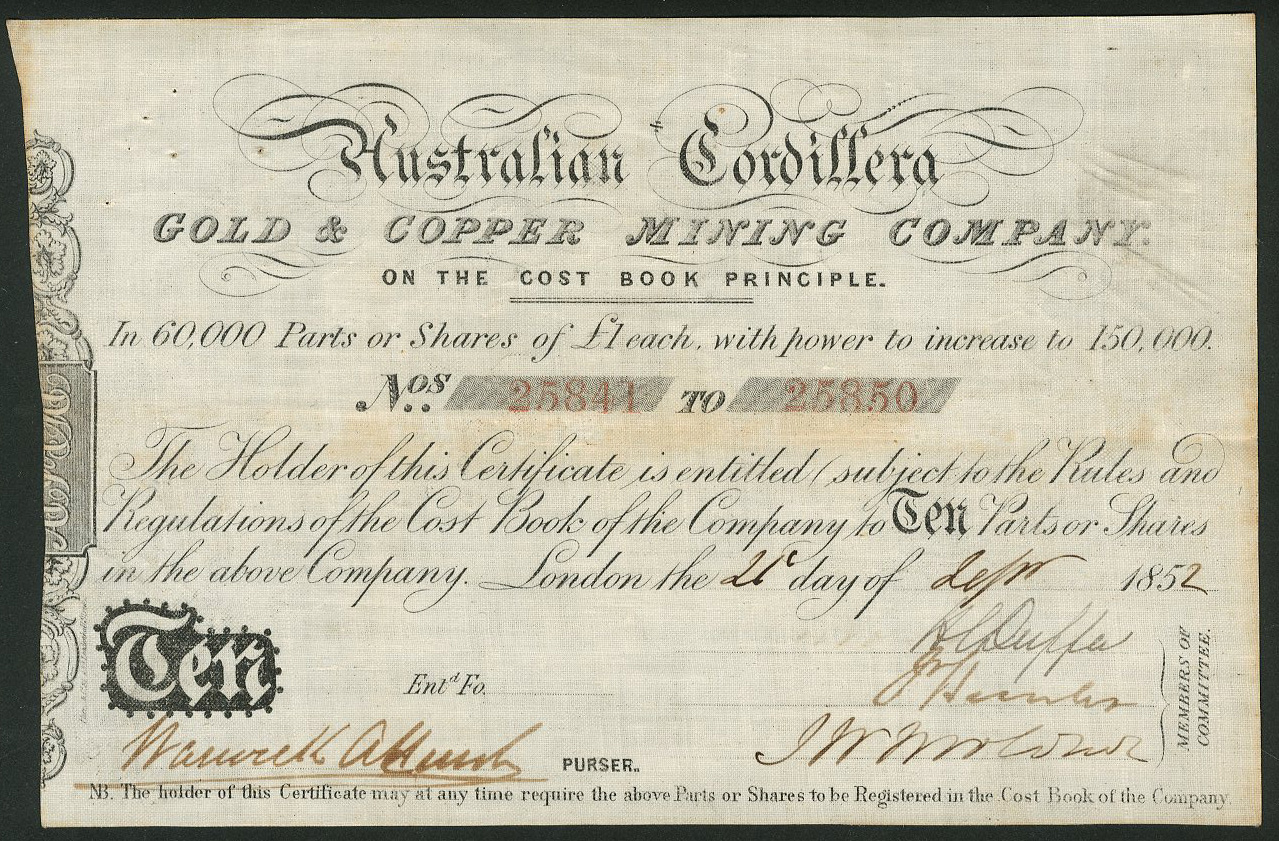 Australian Cordillera
GOLD & COPPER MINING COMPANY.
ON THE COST BOOK PRINCIPLE.
In 60,000 Parts or Shares of £1 each, with power to increase to 150,000.
Nos. 25841 TO 25850
The Holder of this Certificate is entitled (subject to the Rules and
Regulations of the Cost Book of the Company to Ten Parts or Shares
in the above Company. London the 21t day of Sepr 1852
Ten
Entd Fo.
MEMBERS OF
COMMITTEE.
Warwick
PURSER.
NB. The holder of this Certificate may at any time require the above Parts or Shares to be Registered in the Cost Book of the Company.